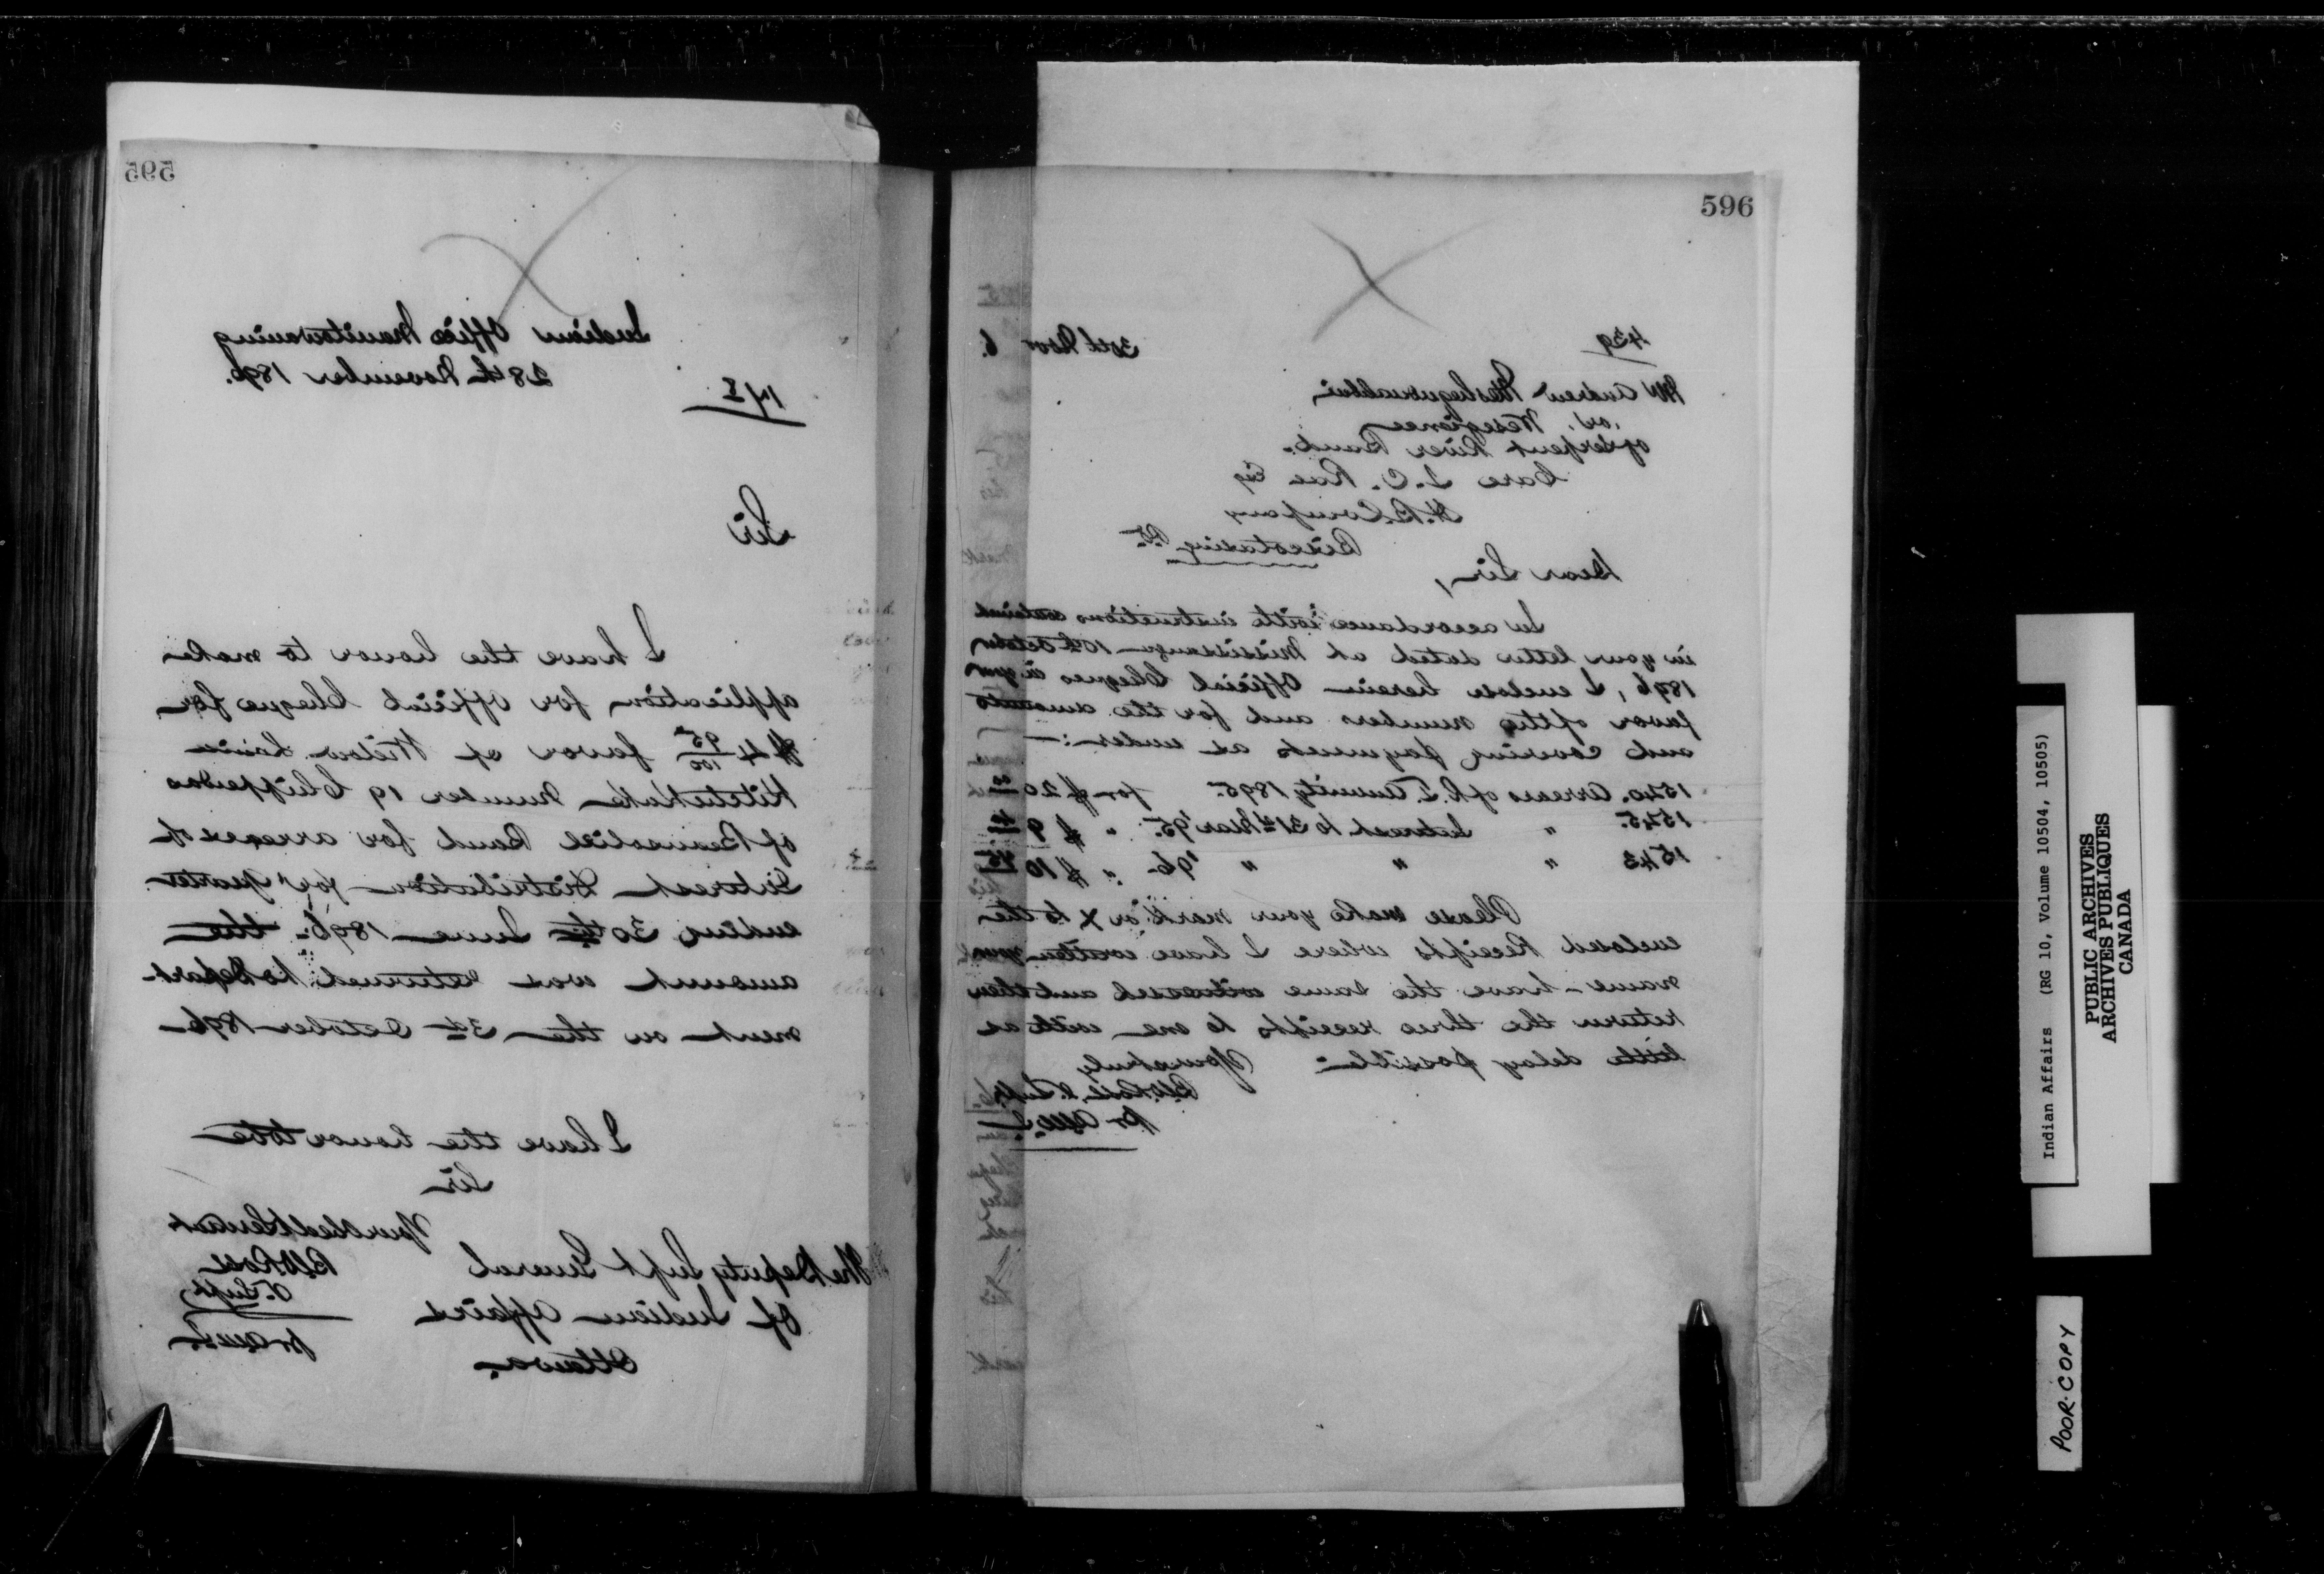 595
Indian Office Manitowaning
28th November 1896.
Sir
I have the honor to make
application for official Cheque for
$4 95/100 favor of Widow Louise
Number 19 Chippewas
of Beausoliel Band for arrears of
Interest Distribution for quarter
ending 30th June 1896. the
amount was returned to Depart-
ment on the 3d October 1896
I have the honor to be
Sir
Your Obedt Servant
B W Ross
V. Supt
The Deputy Supt General
of Indian Affairs
Ottawa.
596
439
30th Novr 6.
Mr Andrew
or
of Serpent River Band.
Care T. C. Rae Esq
H. B. Company
Biscotasing
Dear Sir,
In accordance with instructions contained
in your letter dated at Mississauga 10th October
1896, I enclose herein Official Cheques in your
favor of the numbers and for the amounts
and covering payments as under:—
1540. Arrears of R. T. Annuity 1895. for $20
1545. " Interest to 31st Mar '95. " $9
1543 " " " '96 " $10
Please make your mark or X to the
enclosed Receipts where I have written your
name - have the same witnessed and then
return the three receipts to me with as
little delay possible
Yours truly
Indian Affairs (RG 10, Volume 10504, 10505)
PUBLIC ARCHIVES
ARCHIVES PUBLIQUES
CANADA
POOR COPY